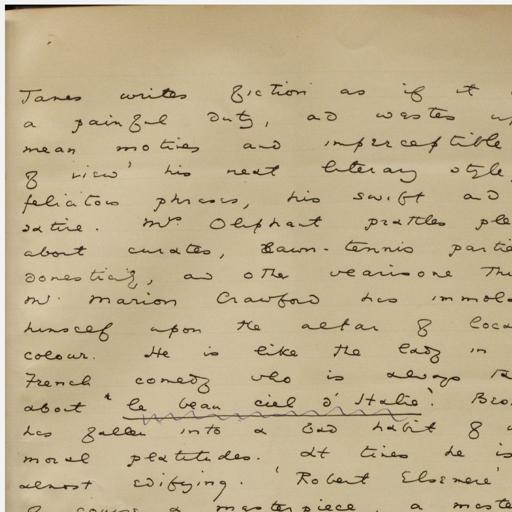 James writes fiction as if it
a painful duty, and wastes
mean motives and imperceptible
of view' his neat literary style,
felicitous phrases, his swift and
satire. Mrs Oliphant prattles
about curates, lawn-tennis
domesticity, and other wearisome
Mr. Marion Crawford has
himself upon the altar of
colour. He is like the lady in
French comedy who is always
about "le beau ciel d'Italie".
has fallen into a bad habit of
moral platitudes. At times he is
almost edifying. 'Robert Elsmere'
of course a masterpiece, a